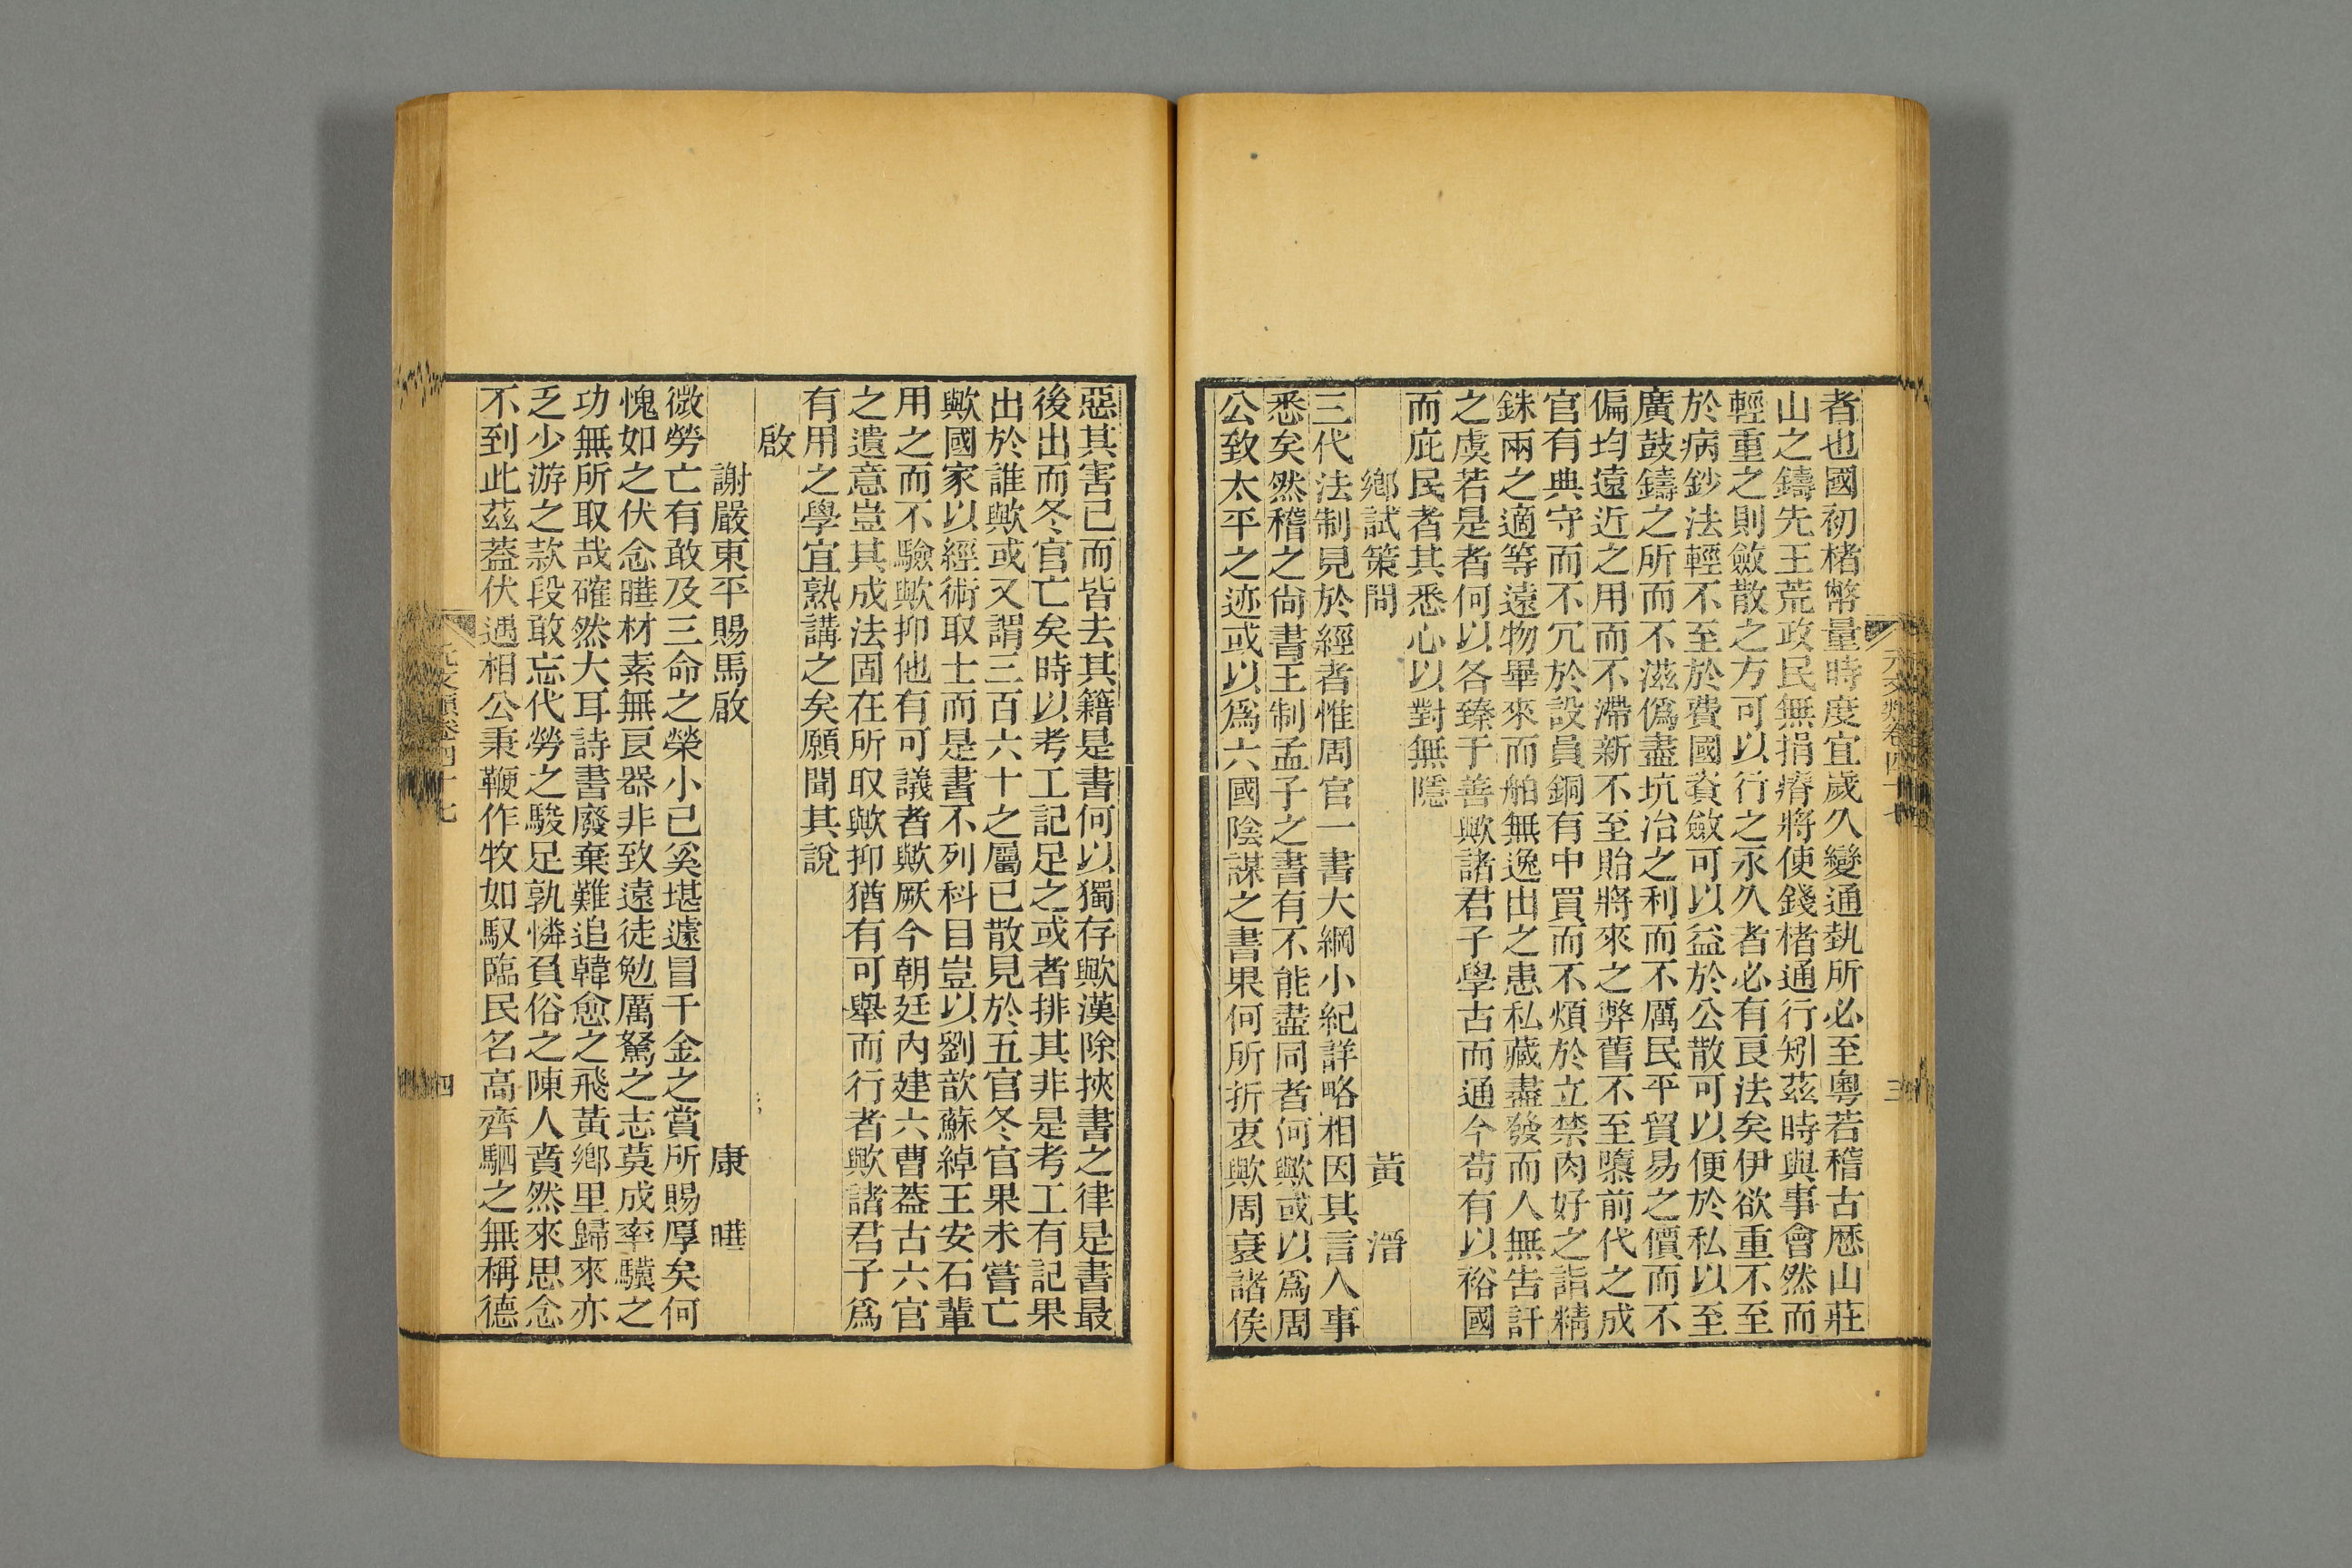 者也國初楮幣量時度宜歲久變通埶所必至粵若稽古歷山莊
山之鑄先王荒政民無捐瘠將使錢楮通行矧茲時與事會然而
輕重之則斂散之方可以行之永久者必有良法矣伊欲重不至
於病鈔法輕不至於費國資斂可以益於公散可以便於私以至
廣鼓鑄之所而不滋僞盡坑冶之利而不厲民平貿易之價而不
偏均遠近之用而不滯新不至貽將來之弊舊不至隳前代之成
官有典守而不冗於設員銅有中買而不煩於立禁肉好之詣精
銖兩之適等遠物畢來而舶無逸出之患私藏盡發而人無吿訐
之虞若是者何以各臻于善歟諸君子學古而通今苟有以裕國
而庇民者其悉心以對無隱
鄉試策問 黃溍
三代法制見於經者惟周官一書大綱小紀詳略相因其言人事
悉矣然稽之尙書王制孟子之書有不能盡同者何歟或以爲周
公致太平之迹或以爲六國陰謀之書果何所折衷歟周衰諸侯
元文類卷四十七 三
惡其害己而皆去其籍是書何以獨存歟漢除挾書之律是書最
後出而冬官亡矣時以考工記足之或者排其非是考工有記果
出於誰歟或又謂三百六十之屬已散見於五官冬官果未嘗亡
歟國家以經術取士而是書不列科目豈以劉歆蘇綽王安石輩
用之而不驗歟抑他有可議者歟厥今朝廷內建六曹蓋古六官
之遺意豈其成法固在所取歟抑猶有可舉而行者歟諸君子爲
有用之學宜熟講之矣願聞其說
啟
謝嚴東平賜馬啟 康曄
微勞亡有敢及三命之榮小己奚堪遽冒千金之賞所賜厚矣何
愧如之伏念曄材素無良器非致遠徒勉厲駑之志莫成率驥之
功無所取哉確然大耳詩書廢棄難追韓愈之飛黃鄉里歸來亦
乏少游之款段敢忘代勞之駿足孰憐負俗之陳人賁然來思念
不到此茲蓋伏遇相公秉鞭作牧如馭臨民名高齊駟之無稱德
元文類卷四十七 四